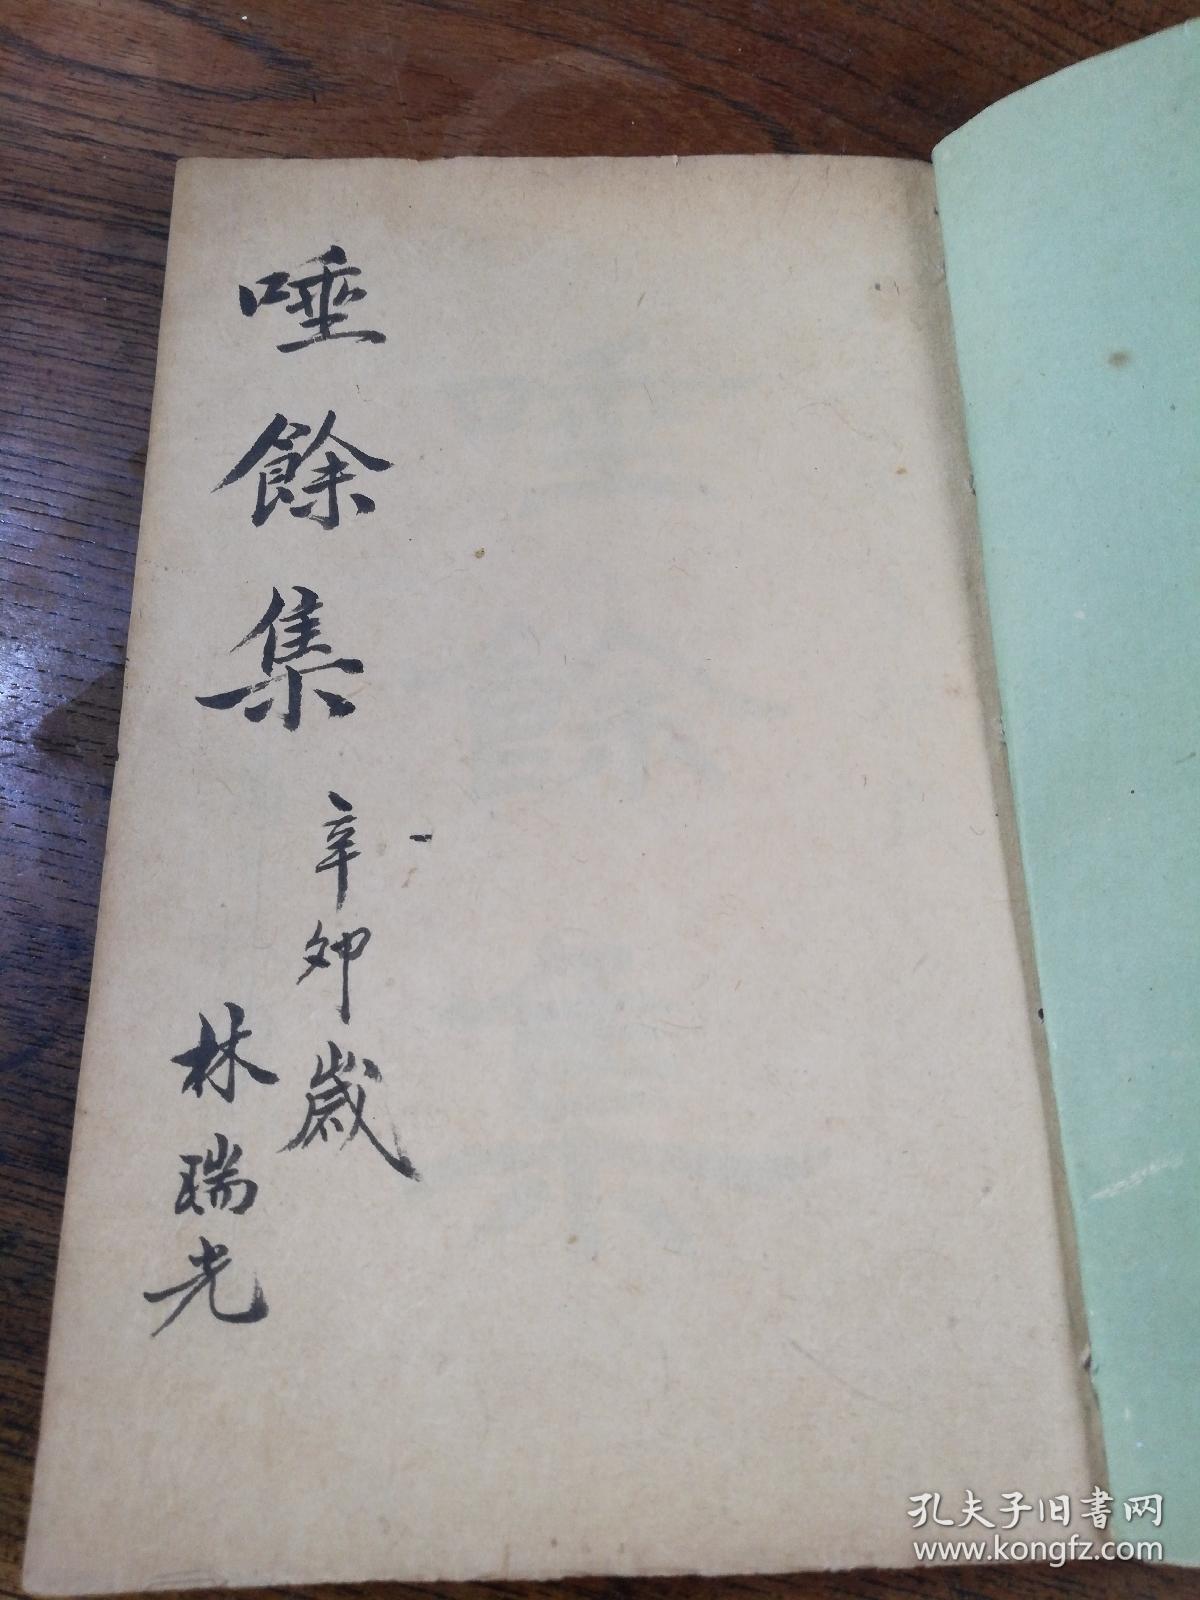 唾餘集
辛卯歲
林瑞光
孔夫子旧書网
www.kongfz.com